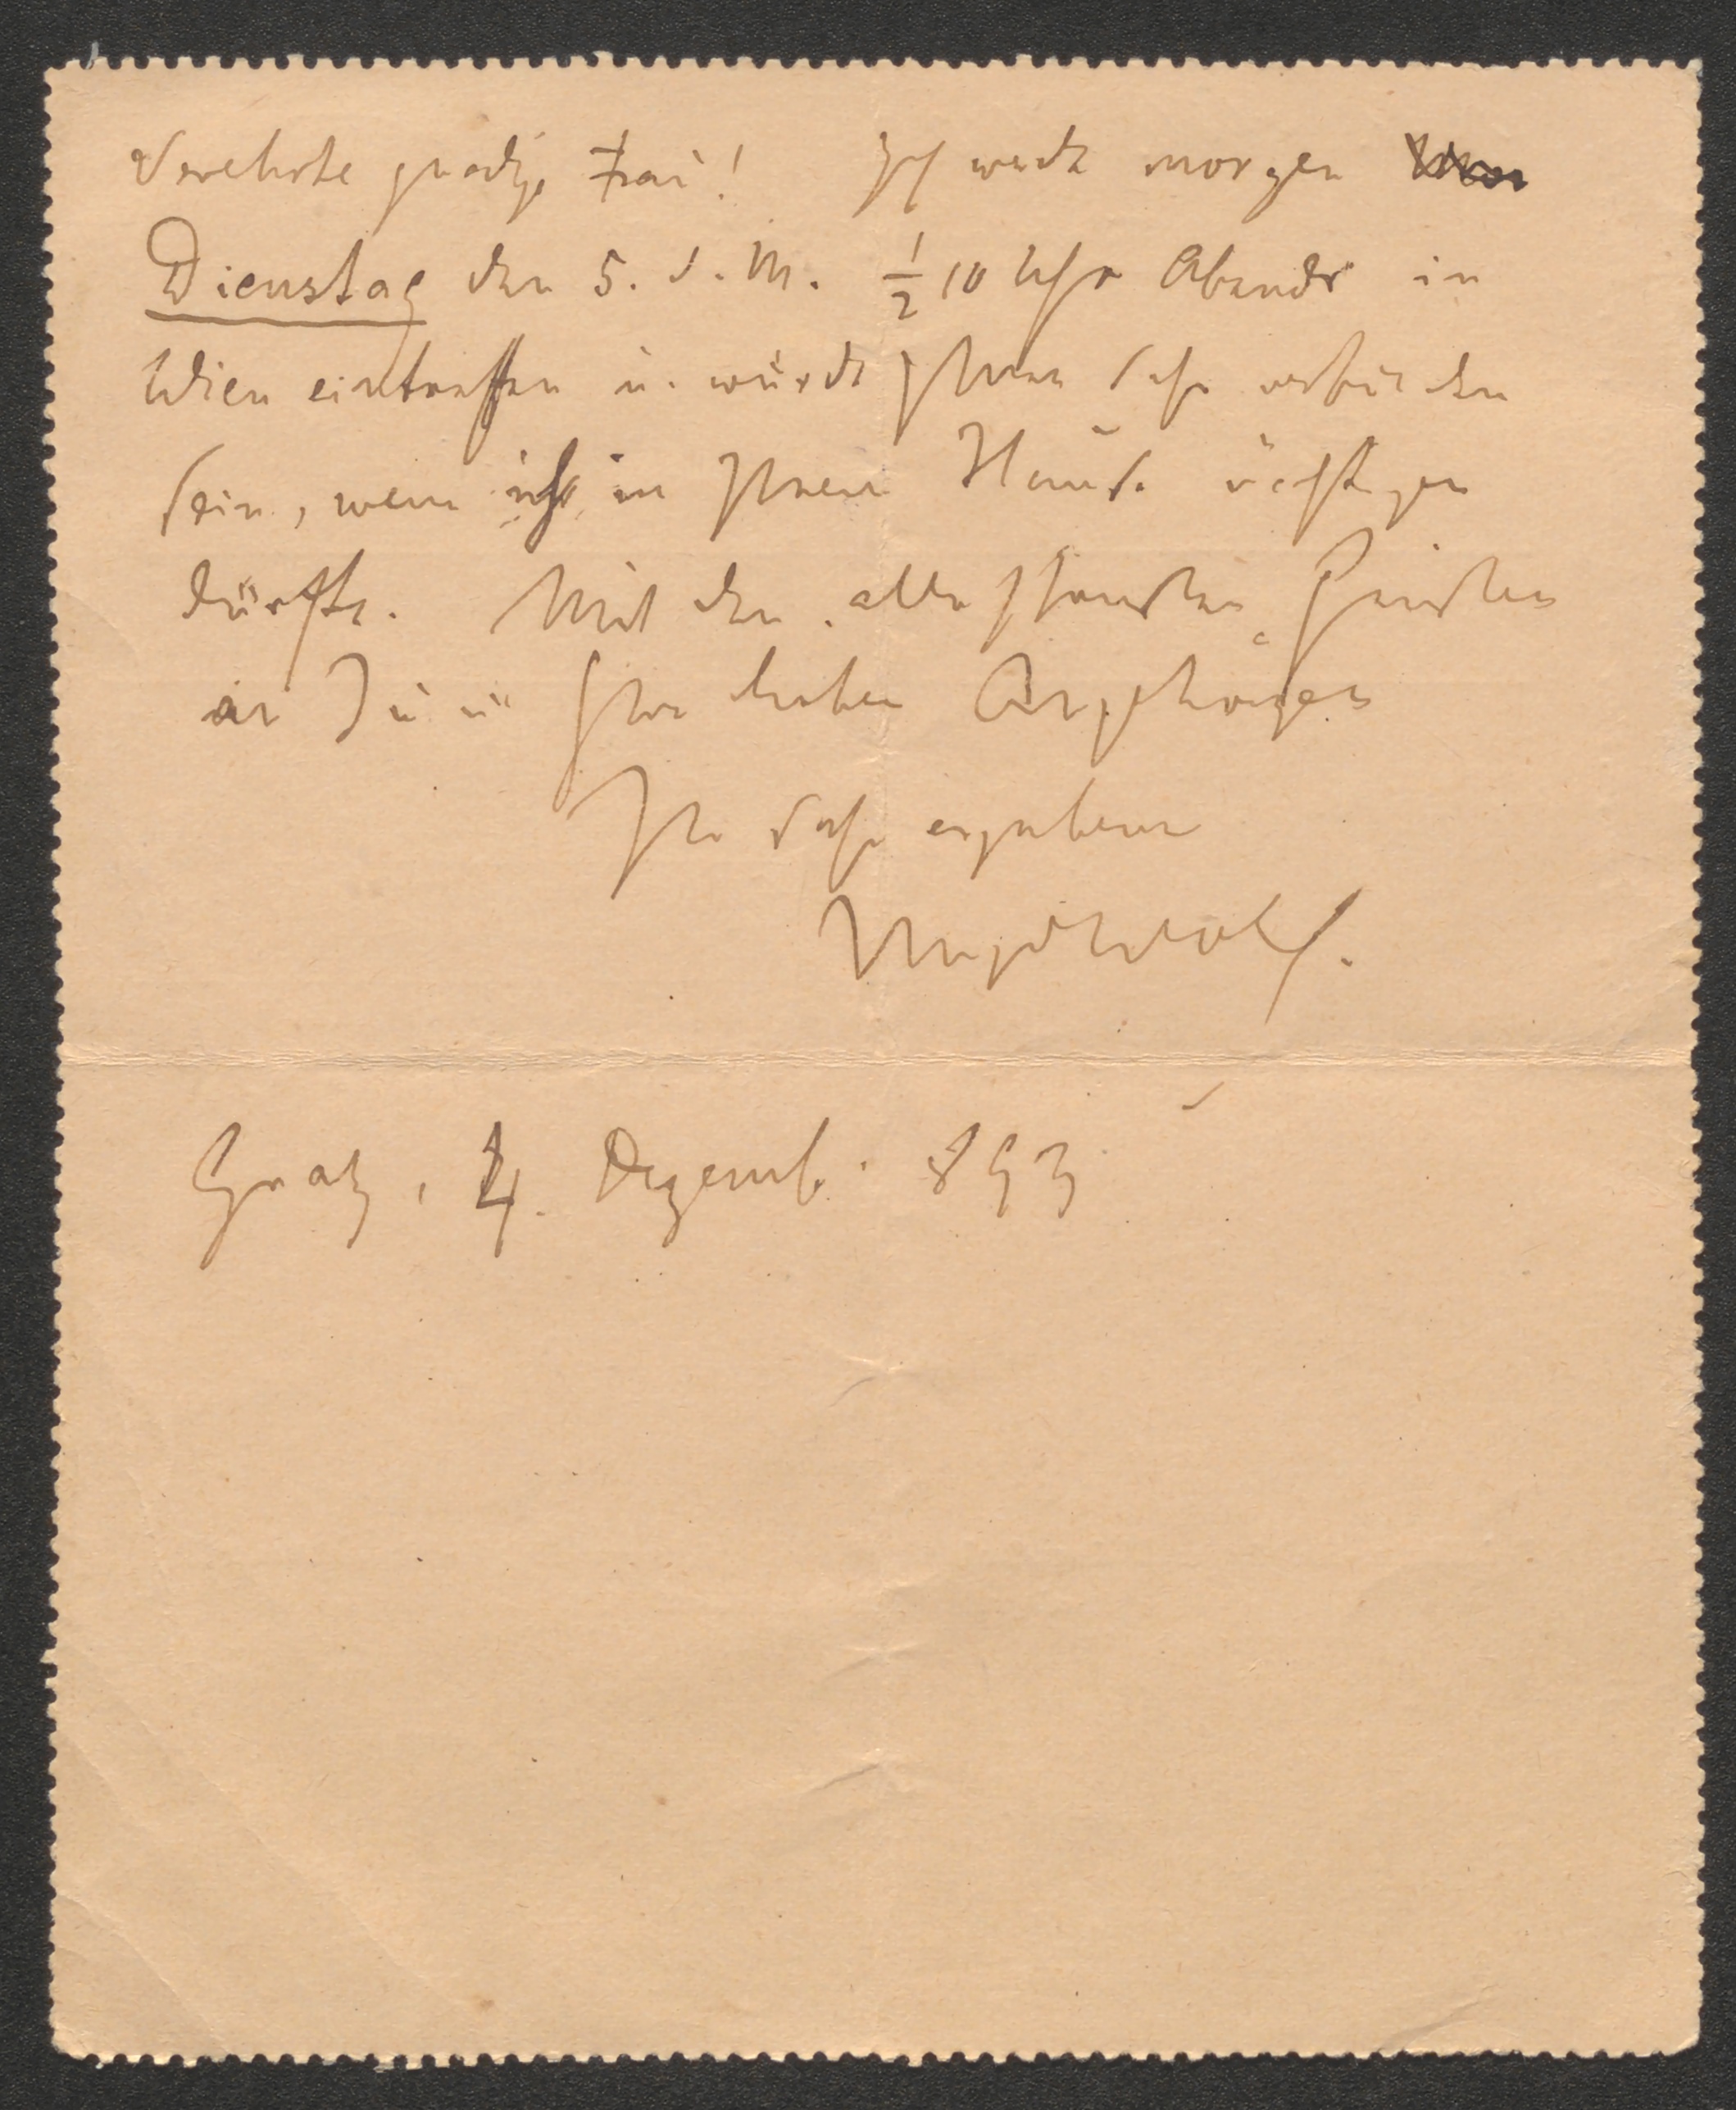 Verehrte gnädige Frau! Ich werde morgen
Dienstag den 5. d. M. ½ 10 Uhr Abends in
Wien eintreffen u. würde Ihnen sehr verbunden
sein, wenn ich in Ihrem Hause nächtigen
dürfte. Mit den allerschönsten Grüßen
an Sie u Ihre lieben Angehörigen
Ihr sehr ergebener
Hugo Wolf.
Graz, 4. Dezemb. 893